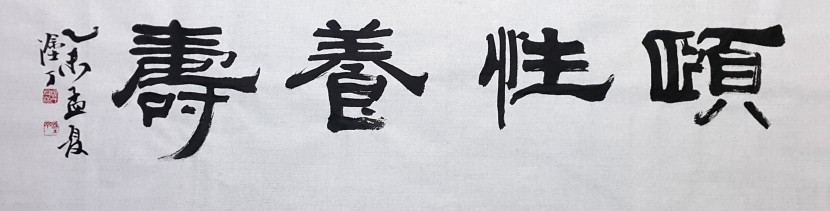 頤性養壽
乙未孟夏